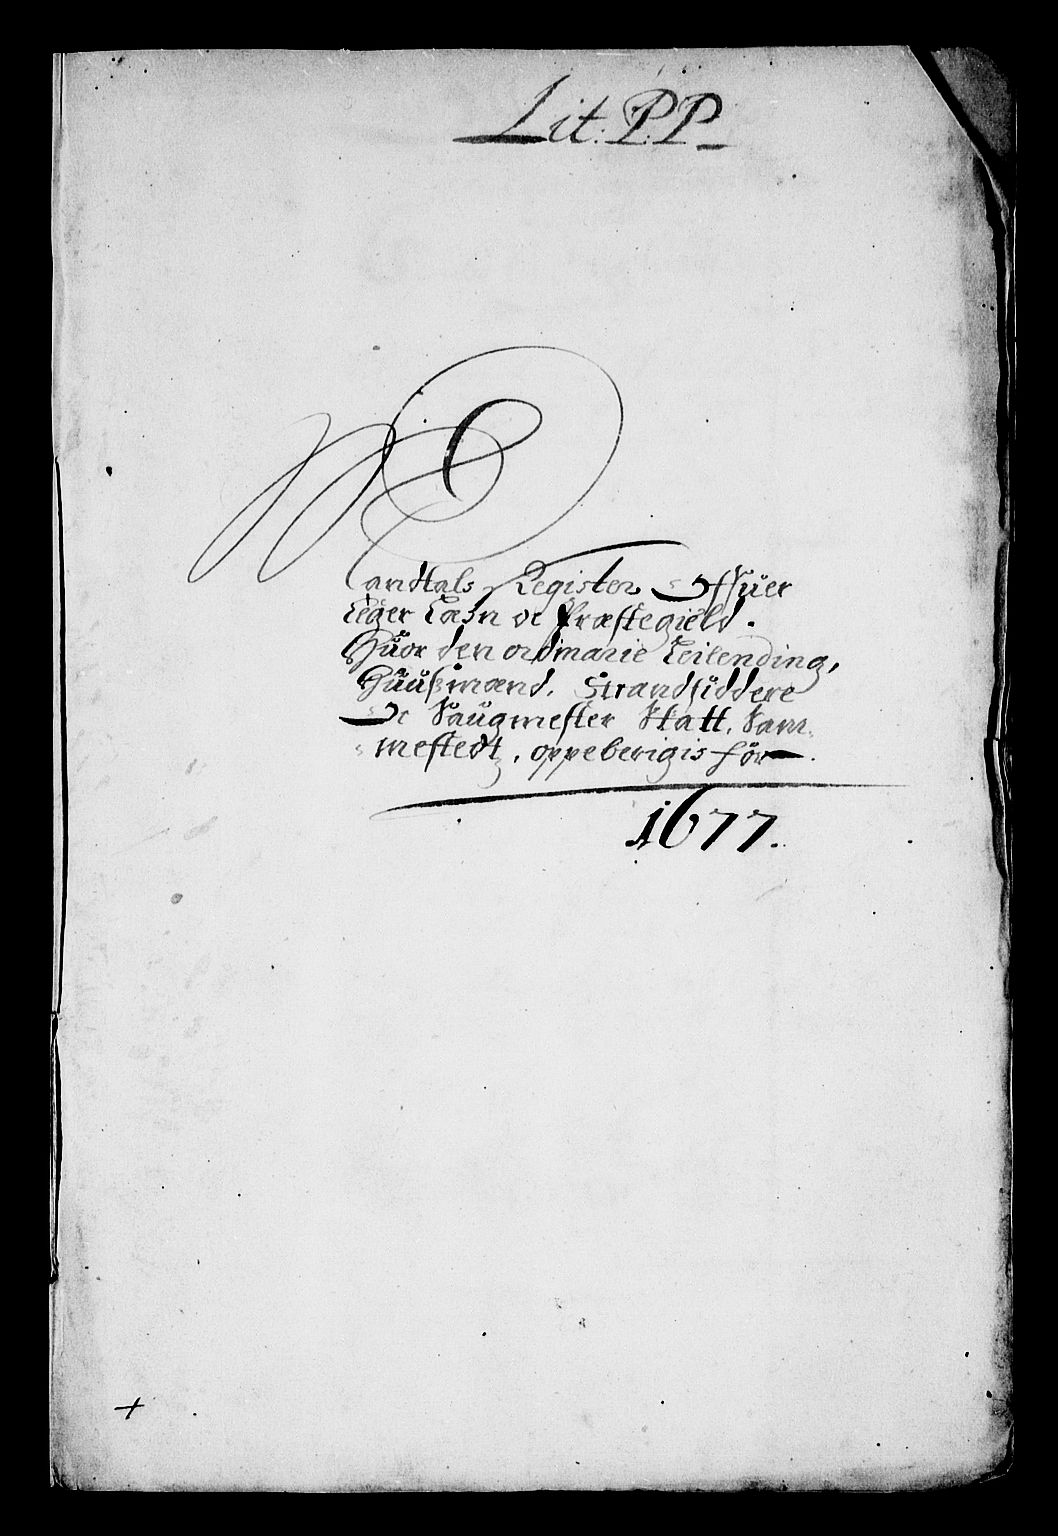 Lit: P.P
Mandtals Register Offuer
Leger Læhn oc Præstegield.
Huor den ordinarie Leilending,
Huusmænd, Strandsiddere
Oc Saugmester Skatt, Sam-
mestedtz, oppebergis för
1677.